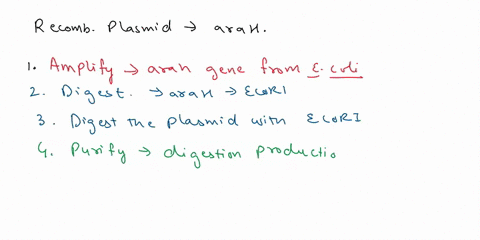 Recomb. Plasmid → araH.
1. Amplify → arah gene from E. coli
2. Digest. → araH → ECORI
3. Digest the plasmid with ECORI
4. Purify → digestion productio